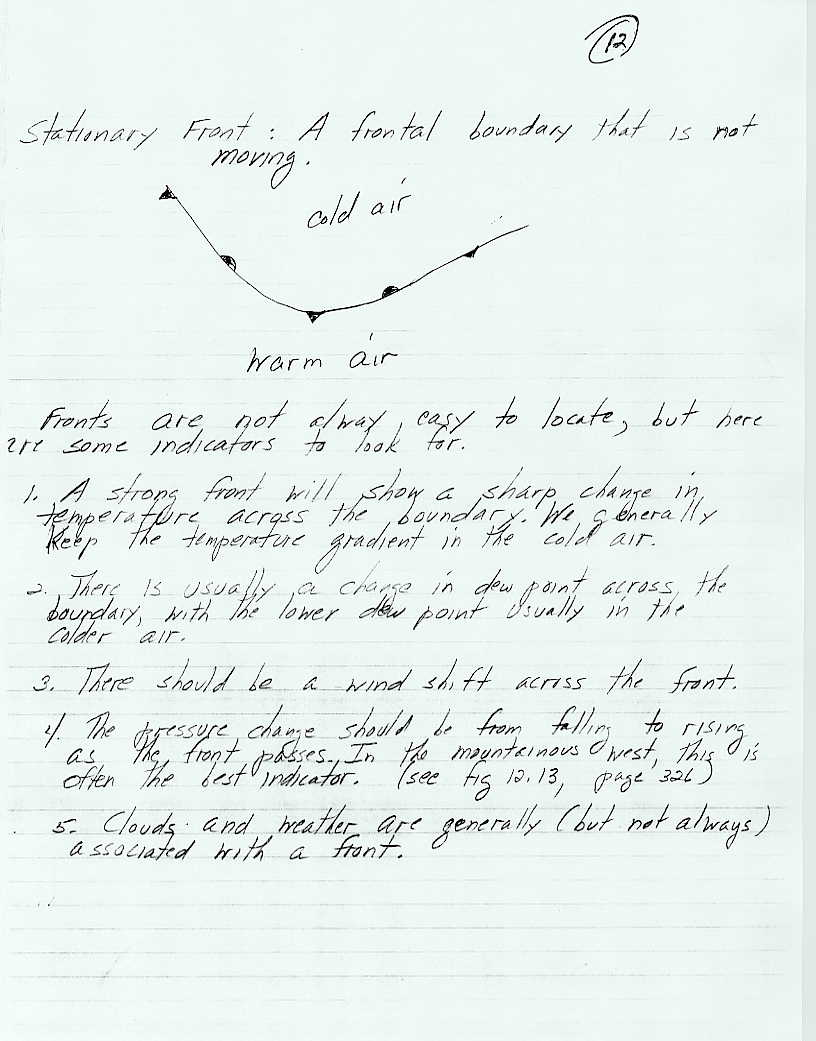 12
Stationary Front : A frontal boundary that is not
moving.
cold air
warm air
Fronts are not alway easy to locate, but here
are some indicators to look for.
1. A strong front will show a sharp change in
temperature across the boundary. We generally
keep the temperature gradient in the cold air.
2. There is usually a change in dew point across the
boundary, with the lower dew point usually in the
colder air.
3. There should be a wind shift across the front.
4. The pressure change should be from falling to rising
as the front passes. In the mountainous west, this is
often the best indicator. (see fig 12.13, page 326)
5. Clouds and weather are generally (but not always)
associated with a front.